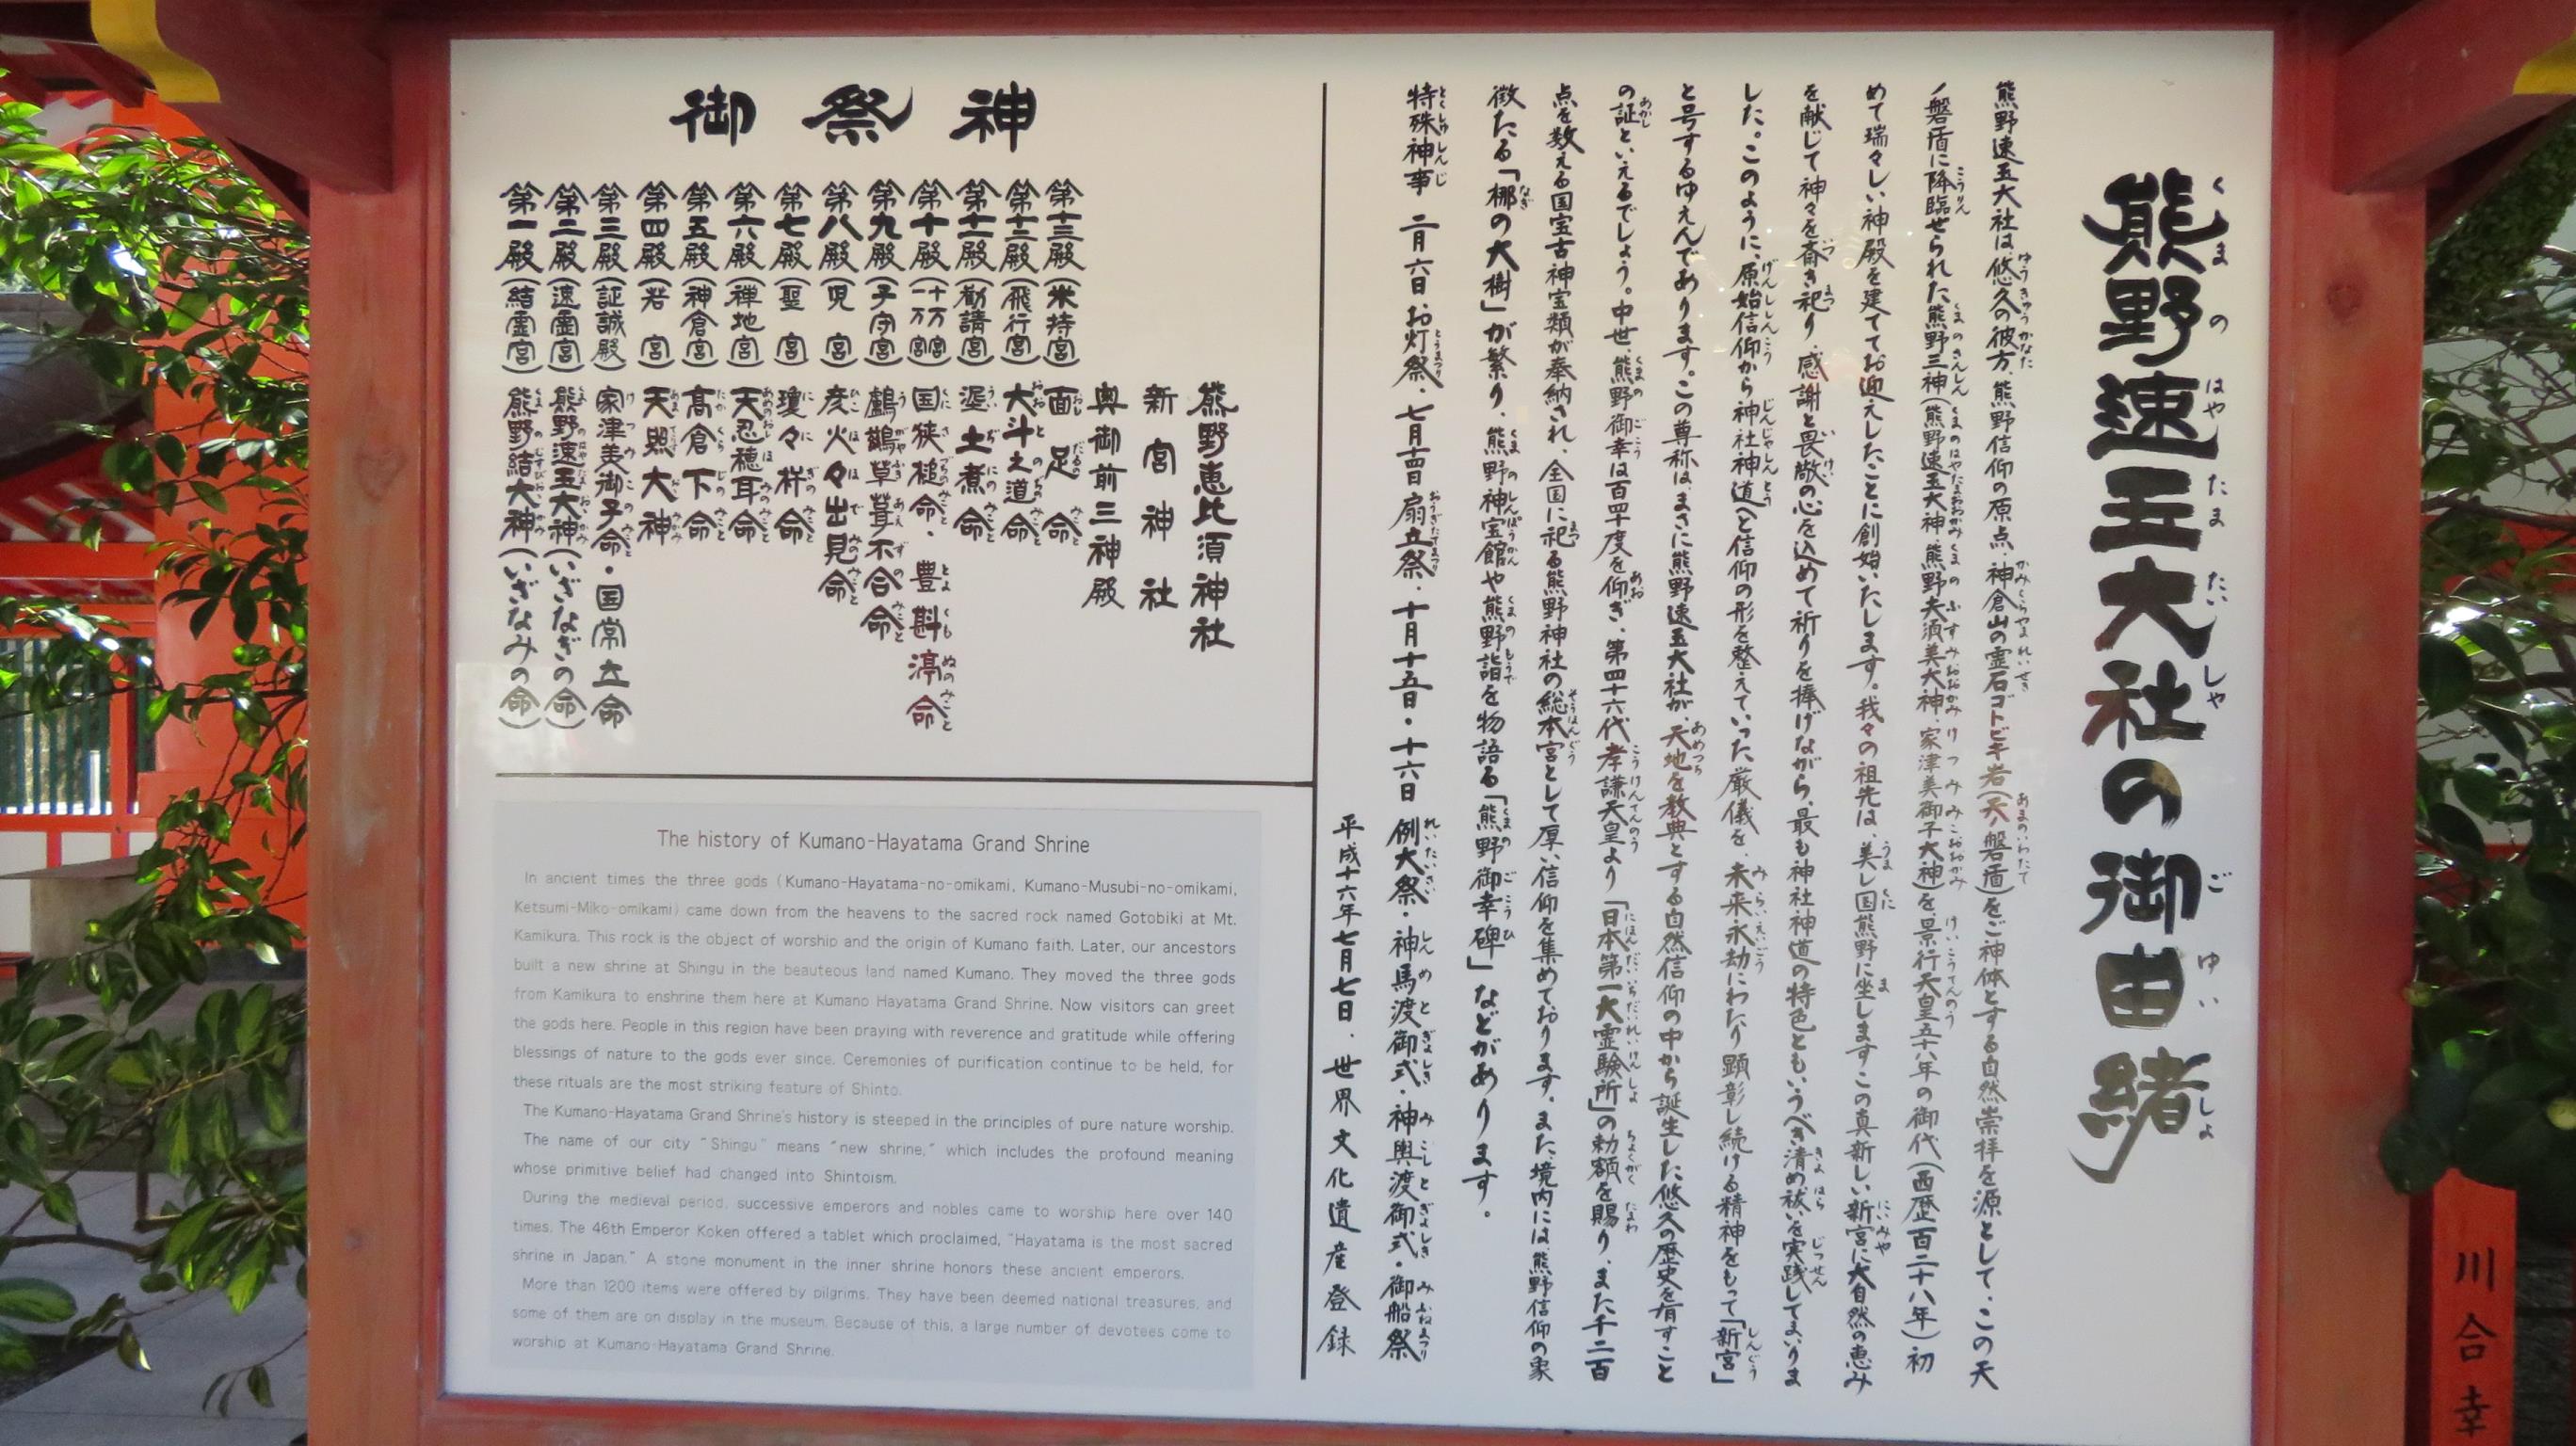 熊野速玉大社の御由緒
熊野速玉大社は、悠久の彼方、熊野信仰の原点、神倉山の霊石ゴトビキ岩(天ノ磐盾)をご神体とする自然崇拝を源として、この天
ノ磐盾に降臨せられた熊野三神(熊野速玉大神、熊野夫須美大神、家津美御子大神)を、景行天皇五十八年の御代(西歴百二十八年)初
めて瑞々しい神殿を建ててお迎えしたことに創始いたします。我々の祖先は、美し国熊野に坐しますこの真新しい新宮に大自然の恵み
を献じて神々を斎き祀り、感謝と畏敬の心を込めて祈りを捧げながら、最も神社神道の特色ともいうべき清め祓いを実践してまいりま
した。このように、原始信仰から神社神道へと信仰の形を整えていった厳儀を、未来永劫にわたり顕彰し続ける精神をもって「新宮」
と号するゆえんであります。この尊称は、まさに熊野速玉大社が、天地を教典とする自然信仰の中から誕生した悠久の歴史を有すこと
の証といえるでしょう。中世、熊野御幸は百四十度を仰ぎ、第四十六代孝謙天皇より「日本第一大霊験所」の勅額を賜り、また千二百
点を数える国宝古神宝類が奉納され、全国に祀る熊野神社の総本宮として厚い信仰を集めております。また、境内には、熊野信仰の象
徴たる「梛の大樹」が繁り、熊野神宝館や熊野詣を物語る「熊野御幸碑」などがあります。
特殊神事 二月六日 お灯祭、七月十四日 扇立祭、十月十五日・十六日 例大祭・神馬渡御式・神輿渡御式・御船祭
平成十六年七月七日、世界文化遺産登録
御祭神
熊野恵比須神社
新宮神社
奥御前三神殿
第十三殿(米持宮) 面足命
第十二殿(飛行宮) 大斗之道命
第十一殿(勧請宮) 泥土煮命
第十殿(一万宮十万宮) 国狭槌命、豊斟渟命
第九殿(子守宮) 鸕鶿草葺不合命
第八殿(児宮) 彦火々出見命
第七殿(聖宮) 瓊々杵命
第六殿(禅地宮) 天忍穂耳命
第五殿(神倉宮) 高倉下命
第四殿(若宮) 天照大神
第三殿(証誠殿) 家津美御子命・国常立命
第二殿(速霊宮) 熊野速玉大神(いざなぎの命)
第一殿(結霊宮) 熊野結大神(いざなみの命)
The history of Kumano-Hayatama Grand Shrine
In ancient times the three gods (Kumano-Hayatama-no-omikami, Kumano-Musubi-no-omikami,
Ketsumi-Miko-omikami) came down from the heavens to the sacred rock named Gotobiki at Mt.
Kamikura. This rock is the object of worship and the origin of Kumano faith. Later, our ancestors
built a new shrine at Shingu in the beauteous land named Kumano. They moved the three gods
from Kamikura to enshrine them here at Kumano Hayatama Grand Shrine. Now visitors can greet
the gods here. People in this region have been praying with reverence and gratitude while offering
blessings of nature to the gods ever since. Ceremonies of purification continue to be held, for
these rituals are the most striking feature of Shinto.
The Kumano-Hayatama Grand Shrine's history is steeped in the principles of pure nature worship.
The name of our city "Shingu" means "new shrine," which includes the profound meaning
whose primitive belief had changed into Shintoism.
During the medieval period, successive emperors and nobles came to worship here over 140
times. The 46th Emperor Koken offered a tablet which proclaimed, "Hayatama is the most sacred
shrine in Japan." A stone monument in the inner shrine honors these ancient emperors.
More than 1200 items were offered by pilgrims. They have been deemed national treasures, and
some of them are on display in the museum. Because of this, a large number of devotees come to
worship at Kumano-Hayatama Grand Shrine.
川合幸